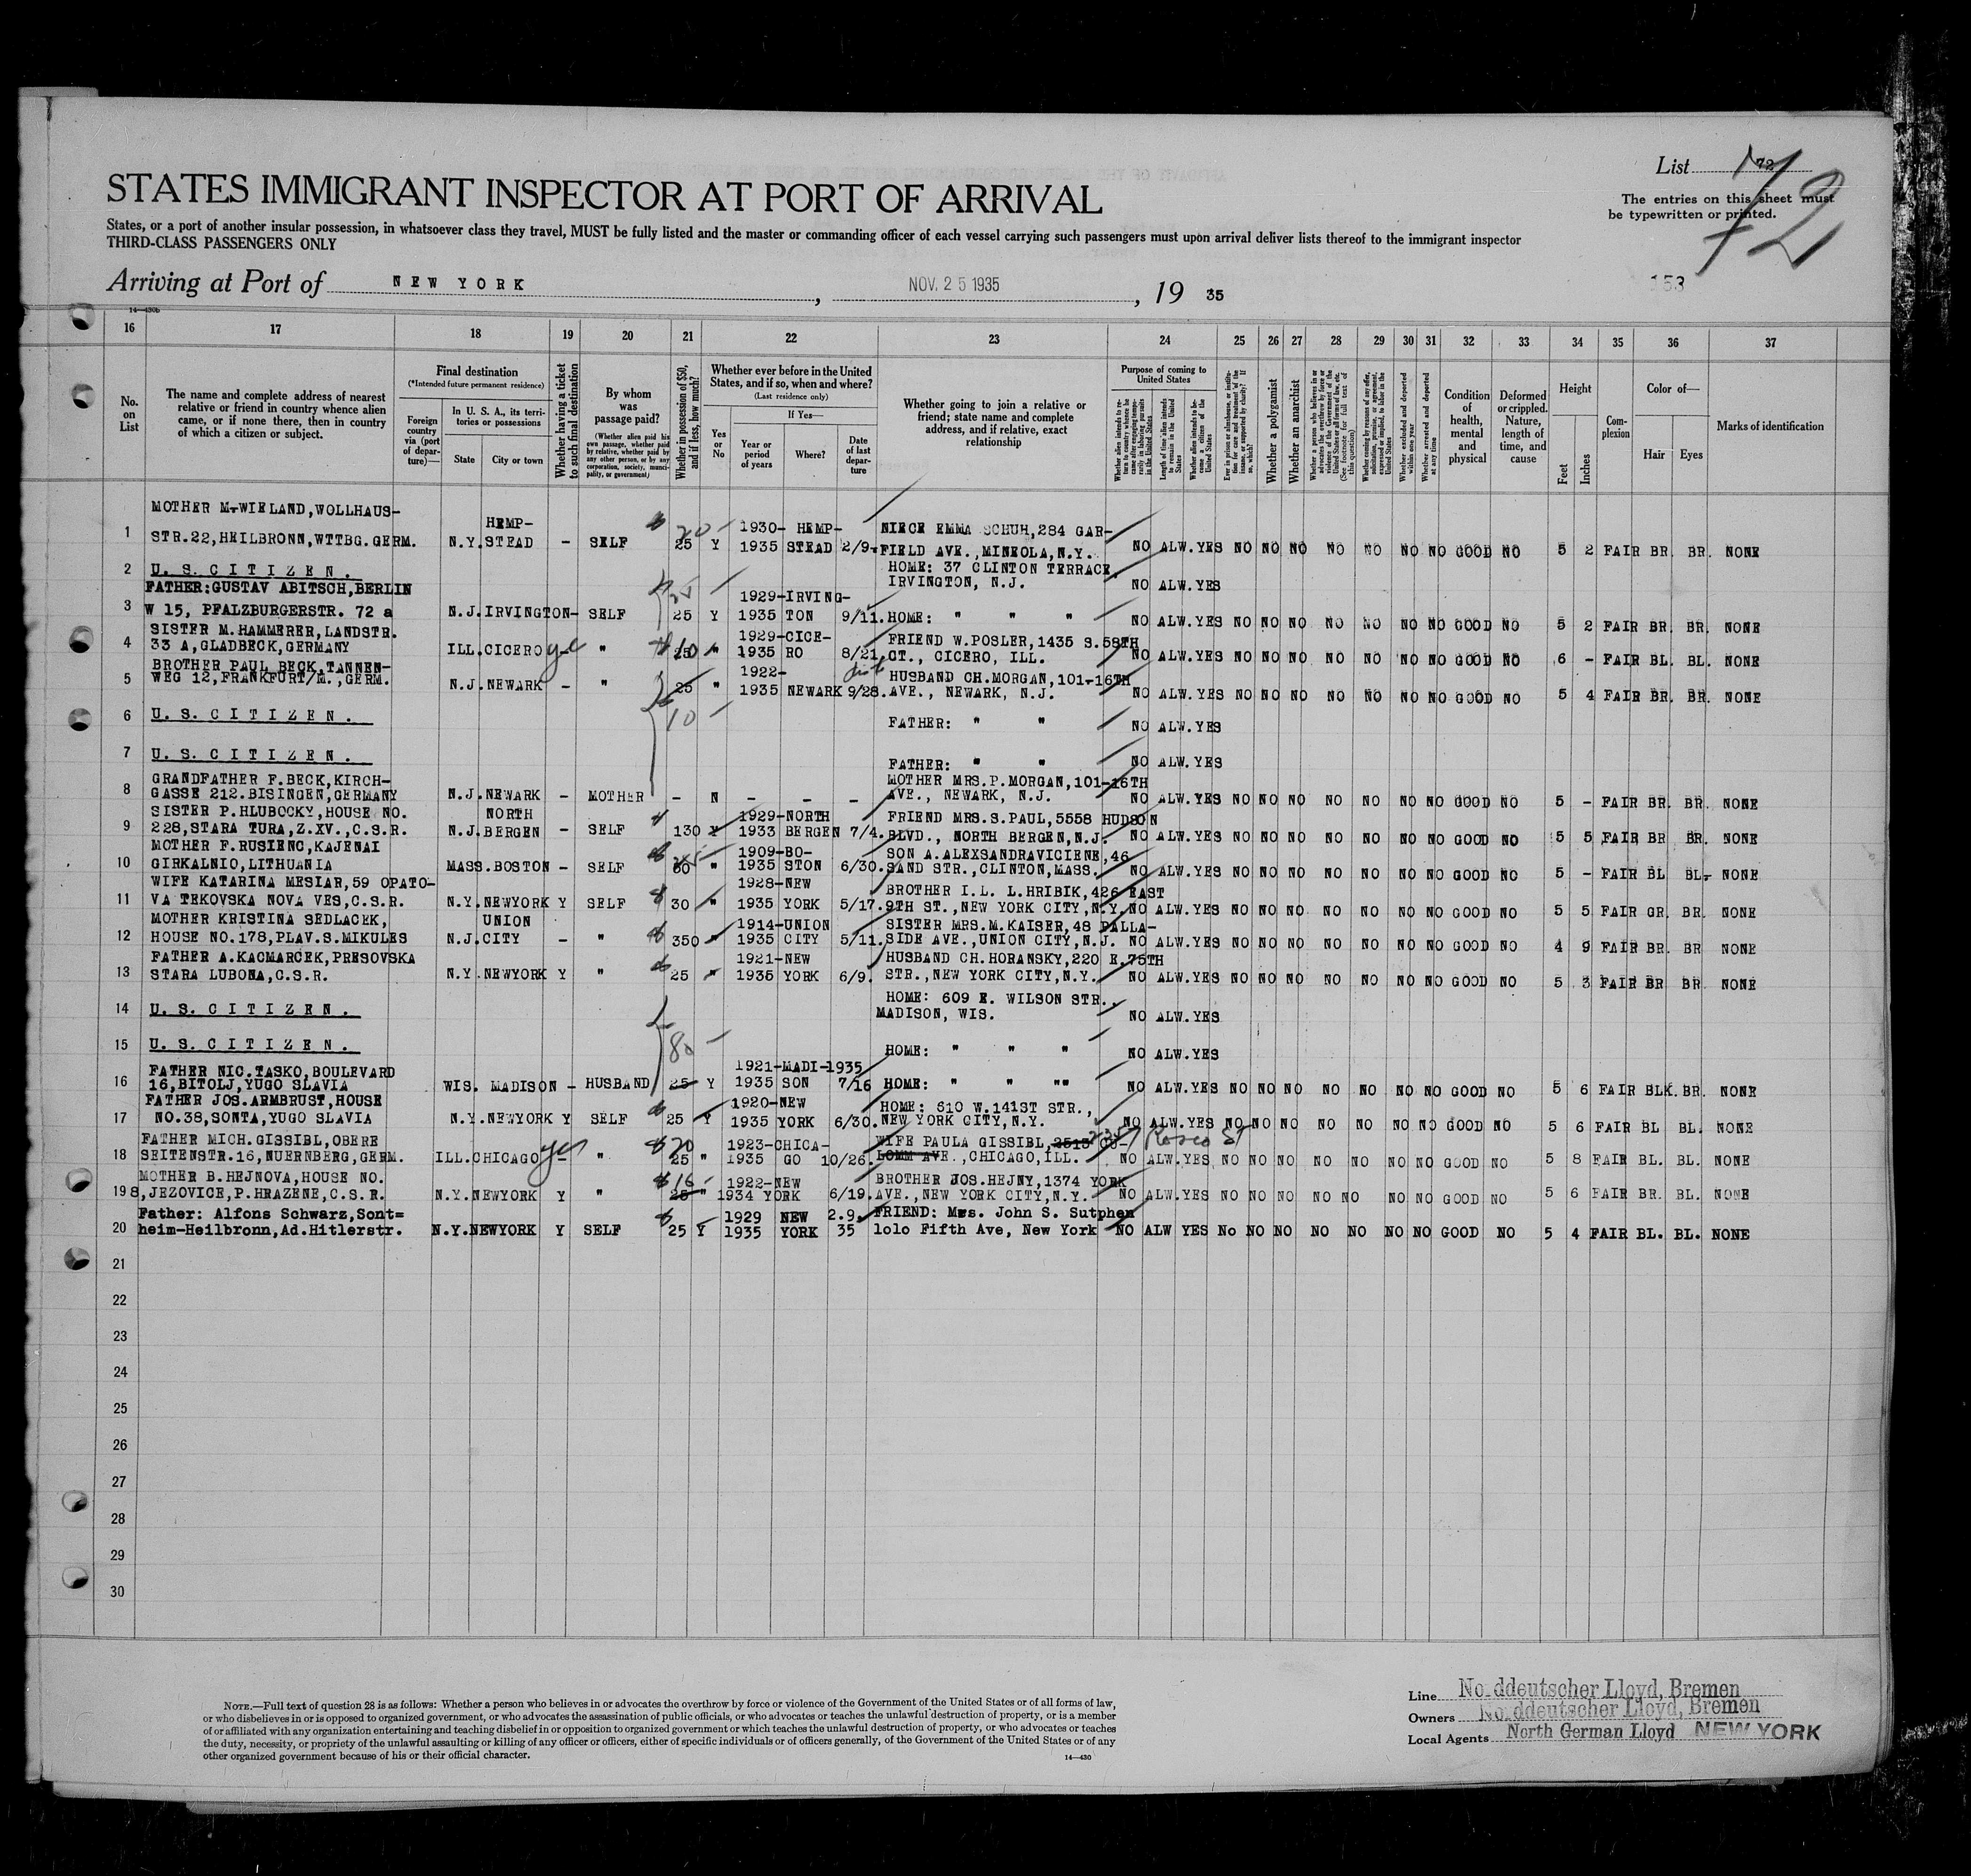 List 72
72
STATES IMMIGRANT INSPECTOR AT PORT OF ARRIVAL
The entries on this sheet must
be typewritten or printed.
States, or a port of another insular possession, in whatsoever class they travel, MUST be fully listed and the master or commanding officer of each vessel carrying such passengers must upon arrival deliver lists thereof to the immigrant inspector
THIRD-CLASS PASSENGERS ONLY
Arriving at Port of NEW YORK, NOV. 25 1935, 19 35
153
14—430b
16 17 18 19 20 21 22 23 24 25 26 27 28 29 30 31 32 33 34 35 36 37
No. on List
The name and complete address of nearest relative or friend in country whence alien came, or if none there, then in country of which a citizen or subject.
Final destination
(*Intended future permanent residence)
Foreign country via (port of departure)—
In U. S. A., its territories or possessions
State
City or town
Whether having a ticket to such final destination
By whom was passage paid?
(Whether alien paid his own passage, whether paid by relative, whether paid by any other person, or by any corporation, society, municipality, or government)
Whether in possession of $50, and if less, how much?
Whether ever before in the United States, and if so, when and where?
(Last residence only)
Yes or No
If Yes—
Year or period of years
Where?
Date of last departure
Whether going to join a relative or friend; state name and complete address, and if relative, exact relationship
Purpose of coming to United States
Length of time alien intends to remain in the United States
Whether alien intends to become a citizen of the United States
Whether a polygamist
Whether an anarchist
Whether arrested and deported at any time
Condition of health, mental and physical
Deformed or crippled. Nature, length of time, and cause
Height
Feet
Inches
Complexion
Color of—
Hair
Eyes
Marks of identification
MOTHER M.WIELAND,WOLLHAUS-
HEMP- 20 1930- HEMP- NIECE EMMA SCHUH,284 GAR-
1 STR.22,HEILBRONN,WTTBG.GERM. N.Y.STEAD - SELF 25 Y 1935 STEAD 2/9. FIELD AVE.,MINEOLA,N.Y. NO ALW.YES NO NO NO NO NO NO NO GOOD NO 5 2 FAIR BR. BR. NONE
HOME: 37 CLINTON TERRACE,
2 U. S. C I T I Z E N . IRVINGTON, N.J. NO ALW.YES
FATHER:GUSTAV ABITSCH,BERLIN 1929-IRVING-
3 W 15, PFALZBURGERSTR. 72 a N.J.IRVINGTON- SELF 25 Y 1935 TON 9/11. HOME: " " " NO ALW.YES NO NO NO NO NO NO NO GOOD NO 5 2 FAIR BR. BR. NONE
SISTER M.HAMMERER,LANDSTR. 1929-CICE- FRIEND W.POSLER,1435 S.58TH
4 33 A,GLADBECK,GERMANY ILL.CICERO yes - " 10 25 " 1935 RO 8/21. CT., CICERO, ILL. NO ALW.YES NO NO NO NO NO NO NO GOOD NO 6 - FAIR BL. BL. NONE
BROTHER PAUL BECK,TANNEN- 1922- HUSBAND CH.MORGAN,101-16TH
5 WEG 12,FRANKFURT/M.,GERM. N.J.NEWARK - " 25 " 1935 NEWARK 9/28. AVE., NEWARK, N.J. NO ALW.YES NO NO NO NO NO NO NO GOOD NO 5 4 FAIR BR. BR. NONE
6 U. S. C I T I Z E N . 10 - FATHER: " " NO ALW.YES
7 U. S. C I T I Z E N . FATHER: " " NO ALW.YES
GRANDFATHER F.BECK,KIRCH- MOTHER MRS.P.MORGAN,101-16TH
8 GASSE 212.BISINGEN,GERMANY N.J.NEWARK - MOTHER - N - - - AVE., NEWARK, N.J. NO ALW.YES NO NO NO NO NO NO NO GOOD NO 5 - FAIR BR. BR. NONE
SISTER P.HLUBOCKY,HOUSE NO. NORTH 1929-NORTH FRIEND MRS.S.PAUL,5558 HUDSON
9 228,STARA TURA,Z.XV.,C.S.R. N.J.BERGEN - SELF 130 Y 1933 BERGEN 7/4. BLVD., NORTH BERGEN,N.J. NO ALW.YES NO NO NO NO NO NO NO GOOD NO 5 5 FAIR BR BR. NONE
MOTHER F.RUSIENC,KAJENAI 1909-BO- SON A.ALEXSANDRAVICIENE,46
10 GIRKALNIO,LITHUANIA MASS.BOSTON - SELF 60 " 1935 STON 6/30. SAND STR.,CLINTON,MASS. NO ALW.YES NO NO NO NO NO NO NO GOOD NO 5 - FAIR BL BL. NONE
WIFE KATARINA MESIAR,59 OPATO- 1928-NEW BROTHER I.L. L.HRIBIK,426 EAST
11 VA TEKOVSKA NOVA VES,C.S.R. N.Y.NEWYORK Y SELF 30 " 1935 YORK 5/17. 9TH ST.,NEW YORK CITY,N.Y. NO ALW.YES NO NO NO NO NO NO NO GOOD NO 5 5 FAIR GR. BR. NONE
MOTHER KRISTINA SEDLACEK, UNION 1914-UNION SISTER MRS.M.KAISER,48 PALLA-
12 HOUSE NO.178,PLAV.S.MIKULES N.J.CITY - " 350 " 1935 CITY 5/11. SIDE AVE.,UNION CITY,N.J. NO ALW.YES NO NO NO NO NO NO NO GOOD NO 4 9 FAIR BR. BR NONE
FATHER A.KACMARCEK,PRESOVSKA 1921-NEW HUSBAND CH.HORANSKY,220 E.75TH
13 STARA LUBONA,C.S.R. N.Y.NEWYORK Y " 25 " 1935 YORK 6/9. STR.,NEW YORK CITY,N.Y. NO ALW.YES NO NO NO NO NO NO NO GOOD NO 5 3 FAIR BR BR NONE
HOME: 609 E. WILSON STR.,
14 U. S. C I T I Z E N . MADISON, WIS. NO ALW.YES
15 U. S. C I T I Z E N . 80 - HOME: " " " NO ALW.YES
FATHER NIC.TASKO,BOULEVARD 1921-MADI-1935
16 16,BITOLJ,YUGO SLAVIA WIS. MADISON - HUSBAND 25 Y 1935 SON 7/16 HOME: " " "" NO ALW.YES NO NO NO NO NO NO NO GOOD NO 5 6 FAIR BLK.BR. NONE
FATHER JOS.ARMBRUST,HOUSE 1920-NEW HOME: 610 W.141ST STR.,
17 NO.38,SONTA,YUGO SLAVIA N.Y.NEWYORK Y SELF 25 Y 1935 YORK 6/30. NEW YORK CITY,N.Y. NO ALW.YES NO NO NO NO NO NO NO GOOD NO 5 6 FAIR BL BL. NONE
FATHER MICH.GISSIBL,OBERE 20 1923-CHICA- WIFE PAULA GISSIBL,2515 CO- Rosco St
18 SEITENSTR.16,NUERNBERG,GERM. ILL.CHICAGO yes - " 25 " 1935 GO 10/26. LOMM AVE.,CHICAGO,ILL. NO ALW.YES NO NO NO NO NO NO NO GOOD NO 5 8 FAIR BL. BL. NONE
MOTHER B.HEJNOVA,HOUSE NO. 16- 1922-NEW BROTHER JOS.HEJNY,1374 YORK
19 8,JEZOVICE,P.HRAZENE,C.S.R. N.Y.NEWYORK Y " 25 " 1934 YORK 6/19. AVE.,NEW YORK CITY,N.Y. NO ALW.YES NO NO NO NO NO NO NO GOOD NO 5 6 FAIR BR. BL. NONE
Father: Alfons Schwarz,Sont= 1929 NEW 2.9. FRIEND: Mrs. John S. Sutphen
20 heim-Heilbronn,Ad.Hitlerstr. N.Y.NEWYORK Y SELF 25 Y 1935 YORK 35 lolo Fifth Ave, New York NO ALW YES No NO NO NO NO NO NO GOOD NO 5 4 FAIR BL. BL. NONE
21
22
23
24
25
26
27
28
29
30
NOTE.—Full text of question 28 is as follows: Whether a person who believes in or advocates the overthrow by force or violence of the Government of the United States or of all forms of law,
or who disbelieves in or is opposed to organized government, or who advocates the assassination of public officials, or who advocates or teaches the unlawful destruction of property, or is a member
of or affiliated with any organization entertaining and teaching disbelief in or opposition to organized government or which teaches the unlawful destruction of property, or who advocates or teaches
the duty, necessity, or propriety of the unlawful assaulting or killing of any officer or officers, either of specific individuals or of officers generally, of the Government of the United States or of any
other organized government because of his or their official character.
14—430
Line No.ddeutscher Lloyd, Bremen
Owners No.ddeutscher Lloyd, Bremen
Local Agents North German Lloyd NEW YORK